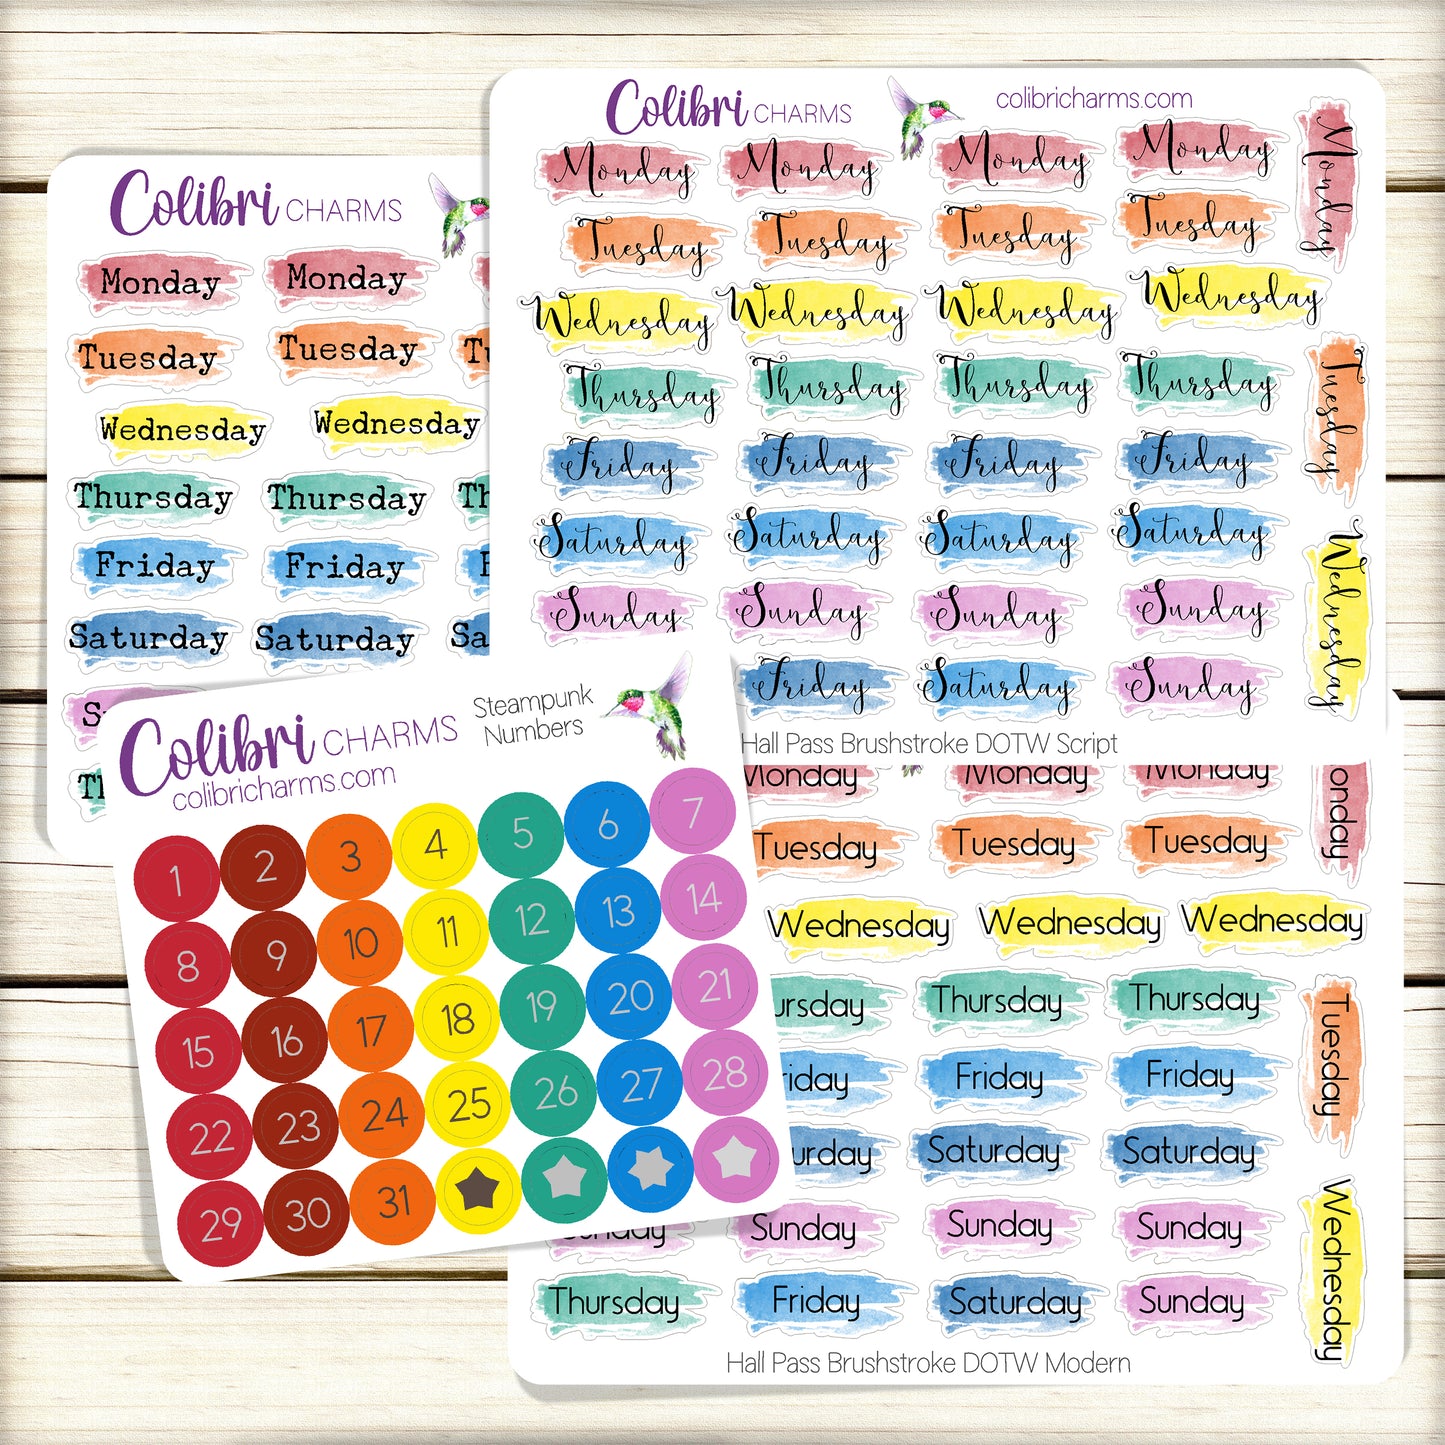 Colibri CHARMS
Monday Monday
Tuesday Tuesday
Wednesday Wednesday
Thursday Thursday
Friday Friday
Saturday Saturday
Colibri CHARMS colibricharms.com
Monday Monday Monday Monday Monday
Tuesday Tuesday Tuesday Tuesday
Wednesday Wednesday Wednesday Wednesday
Tuesday
Thursday Thursday Thursday Thursday
Friday Friday Friday Friday
Saturday Saturday Saturday Saturday
Wednesday
Sunday Sunday Sunday Sunday
Friday Saturday Sunday
Hall Pass Brushstroke DOTW Script
Colibri CHARMS
Steampunk
Numbers
colibricharms.com
1 2 3 4 5 6 7
8 9 10 11 12 13 14
15 16 17 18 19 20 21
22 23 24 25 26 27 28
29 30 31
Monday Monday Monday
Tuesday Tuesday Tuesday
Wednesday Wednesday Wednesday
Thursday Thursday
Tuesday
Friday Friday
Saturday Saturday
Sunday Sunday Sunday Sunday
Wednesday
Thursday Friday Saturday Sunday
Hall Pass Brushstroke DOTW Modern